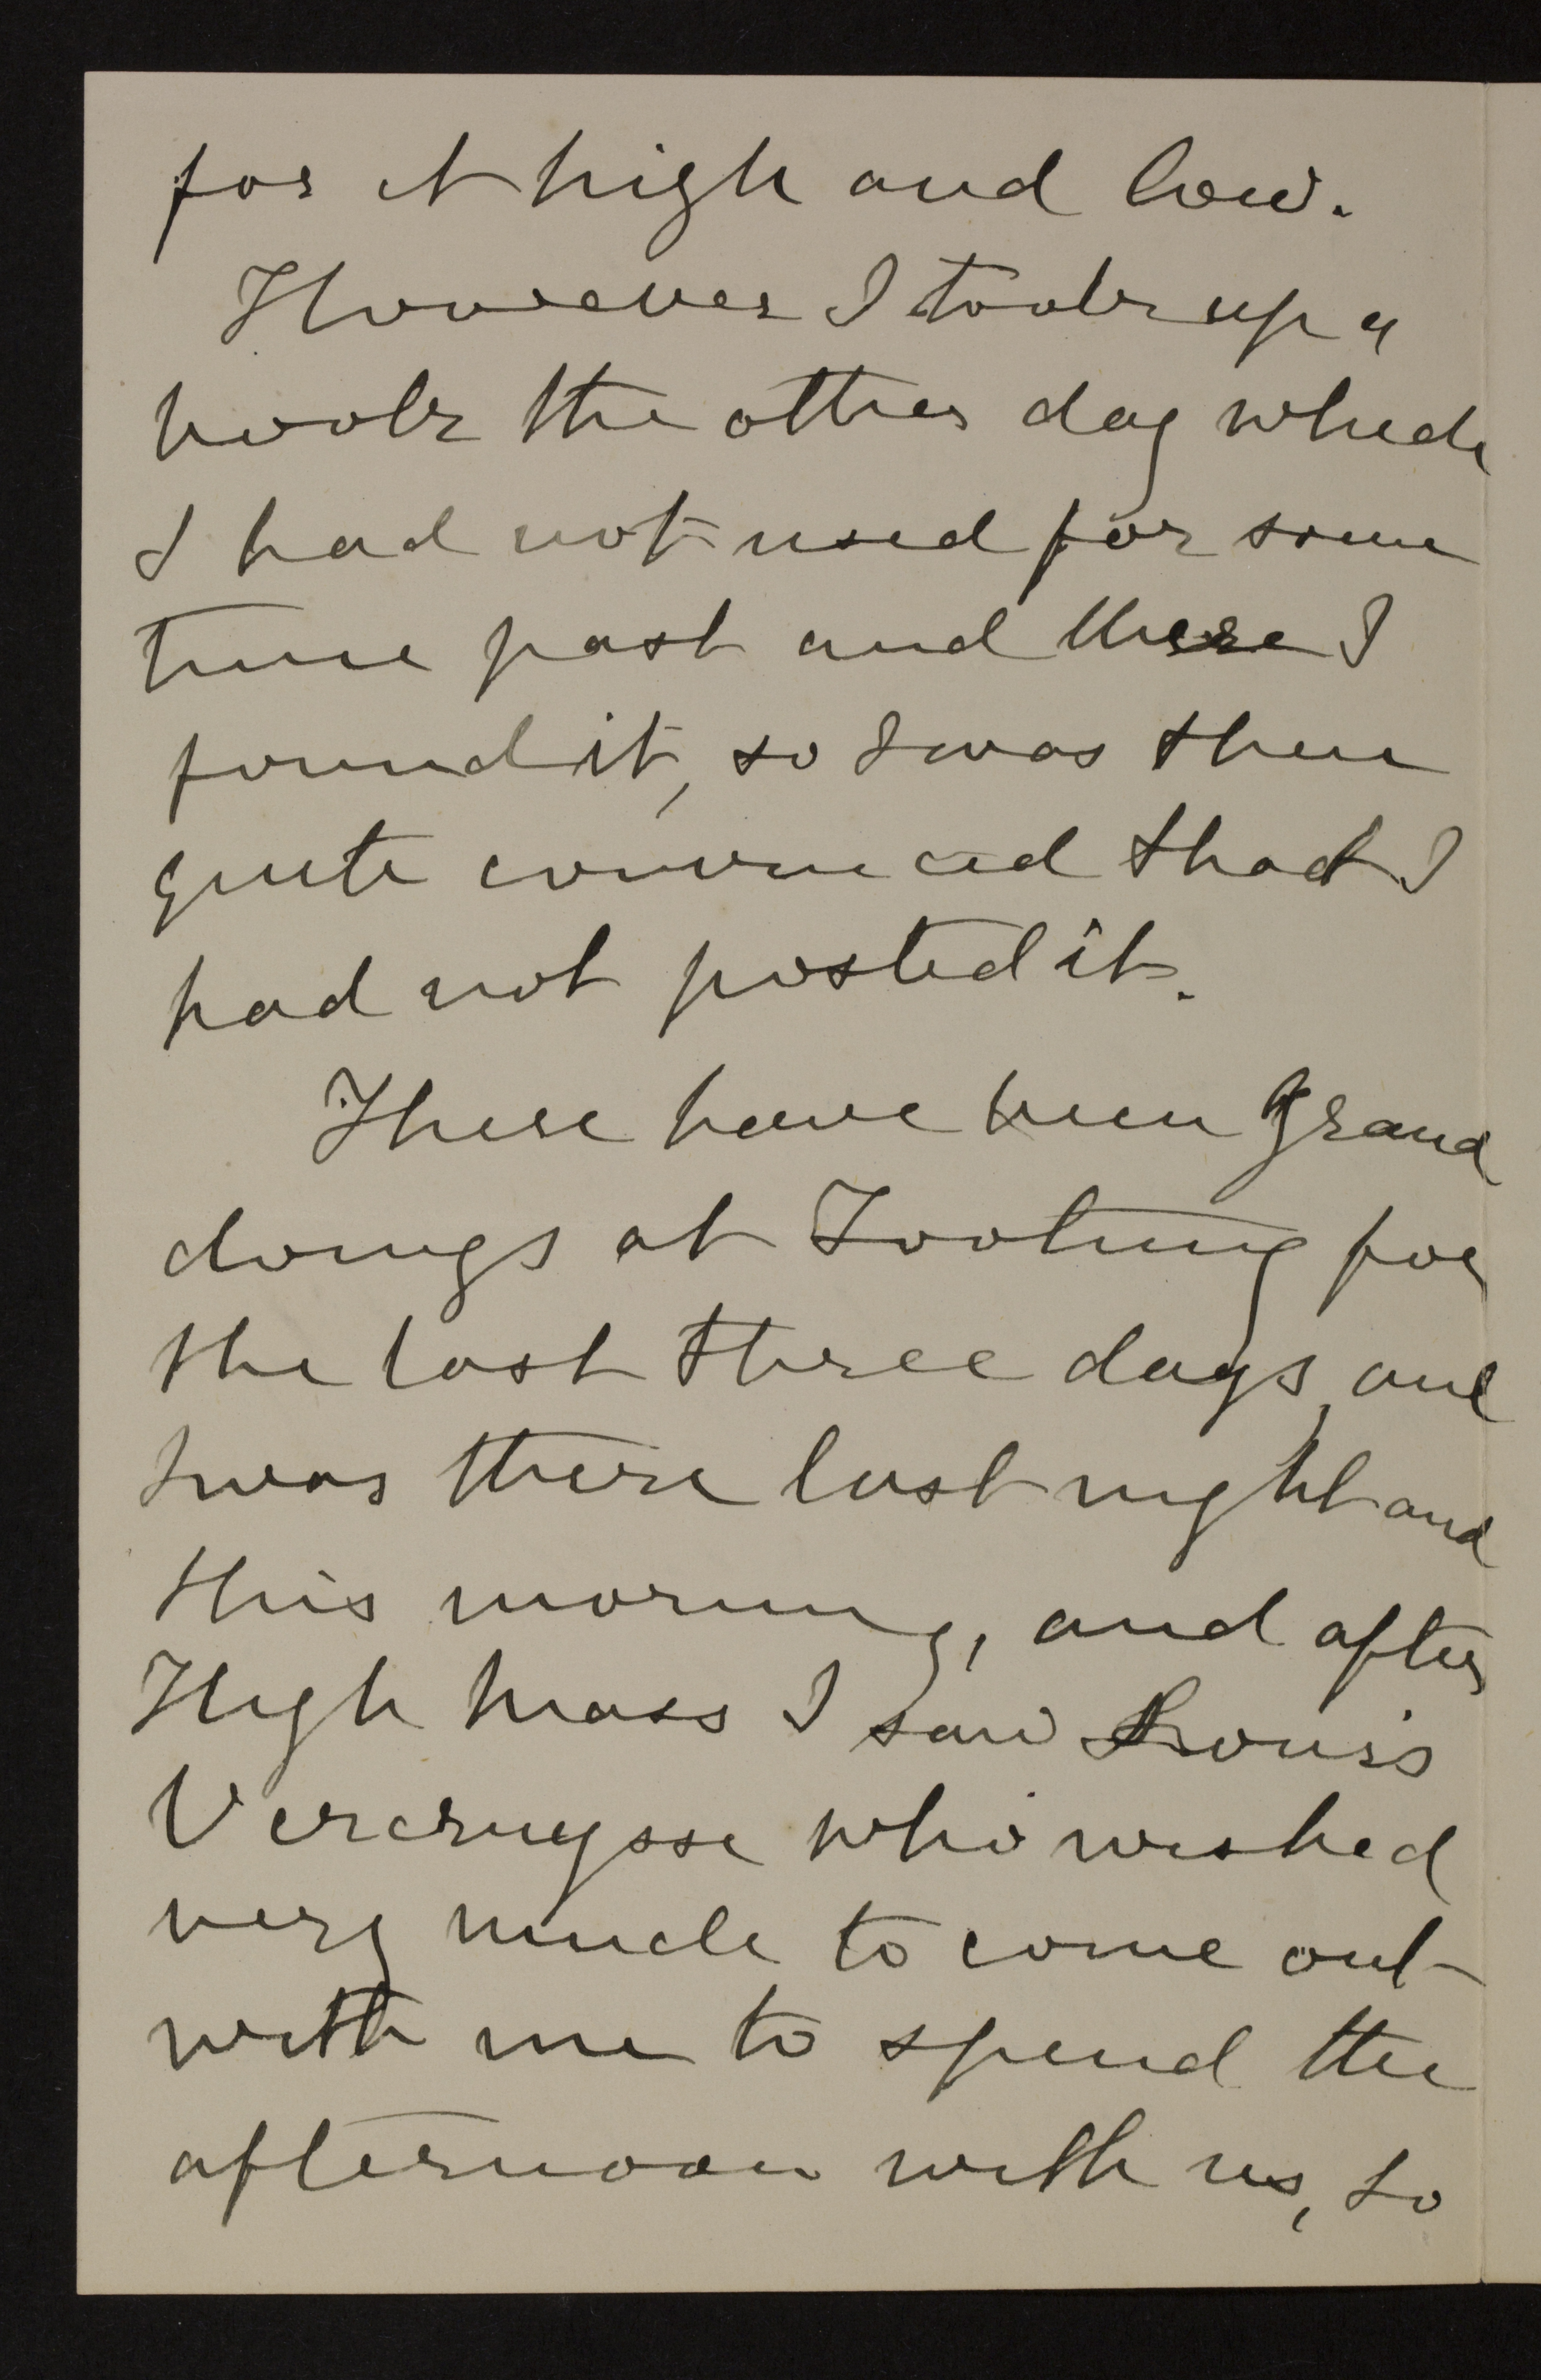 for it high and low.
However I took up a
book the other day which
I had not used for some
time past and there I
found it, so I was then
quite convinced that I
had not posted it.
There have been grand
doings at Tooting for
the last three days, and
I was there last night and
this morning, and after
High Mass I saw Louis
Vercruysse who wished
very much to come out
with me to spend the
afternoon with us, so